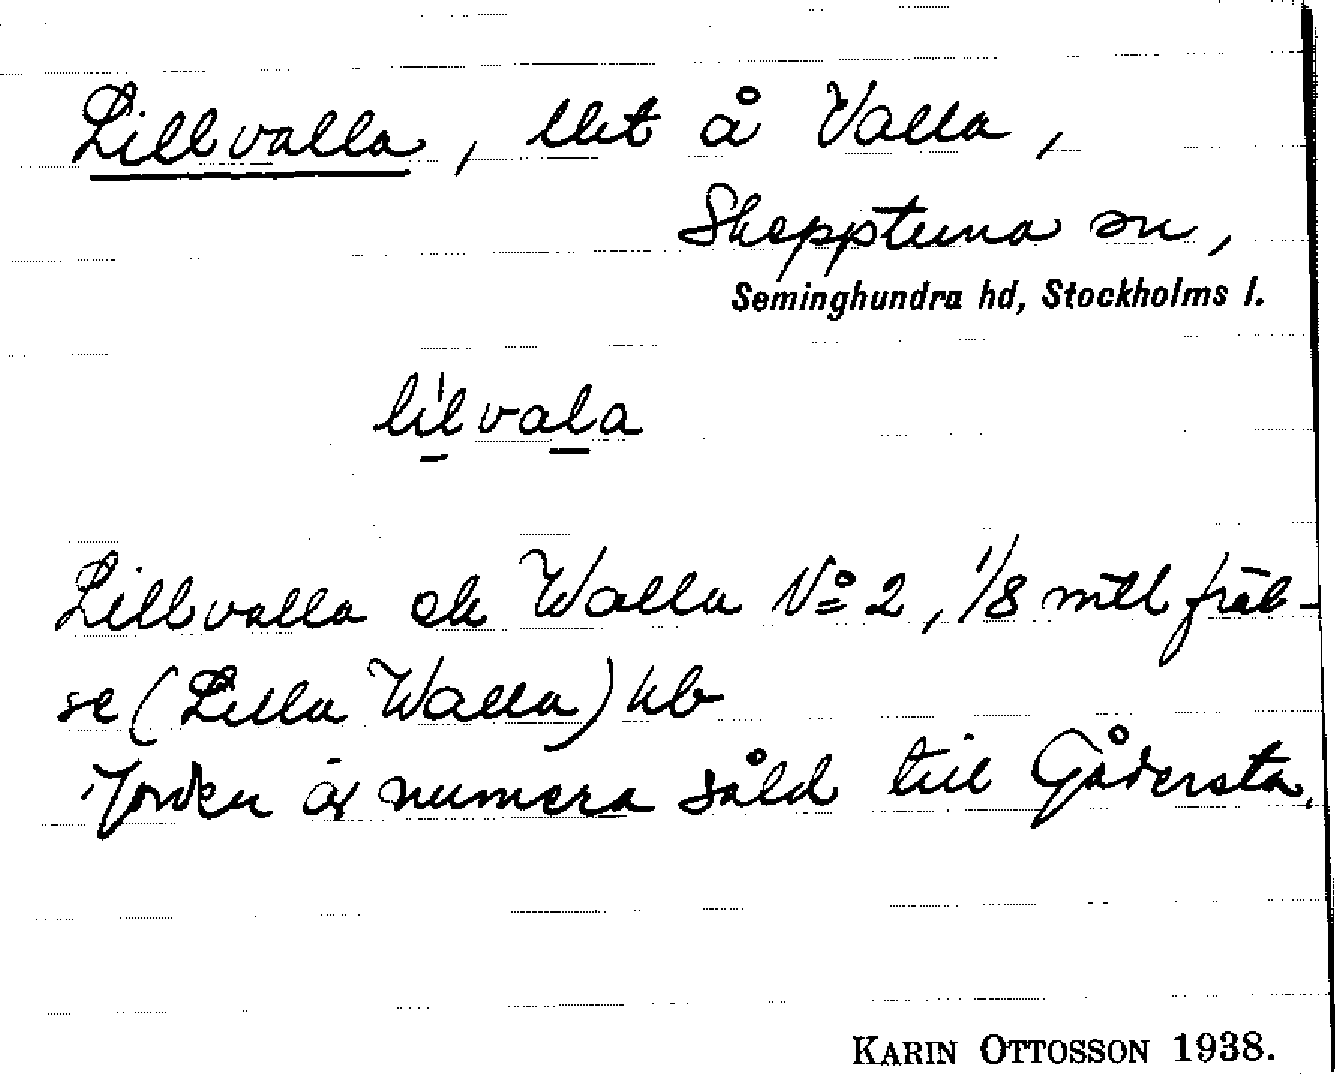 Lillvalla, lht å Valla,
Skepptuna sn,
Seminghundra hd, Stockholms l.
li̱ˈlvaḻa
Lillvalla ek Walla No 2, 1/8 mtl fräl-
se (Lilla Walla) kb
Jorden är numera såld till Gådersta.
KARIN OTTOSSON 1938.